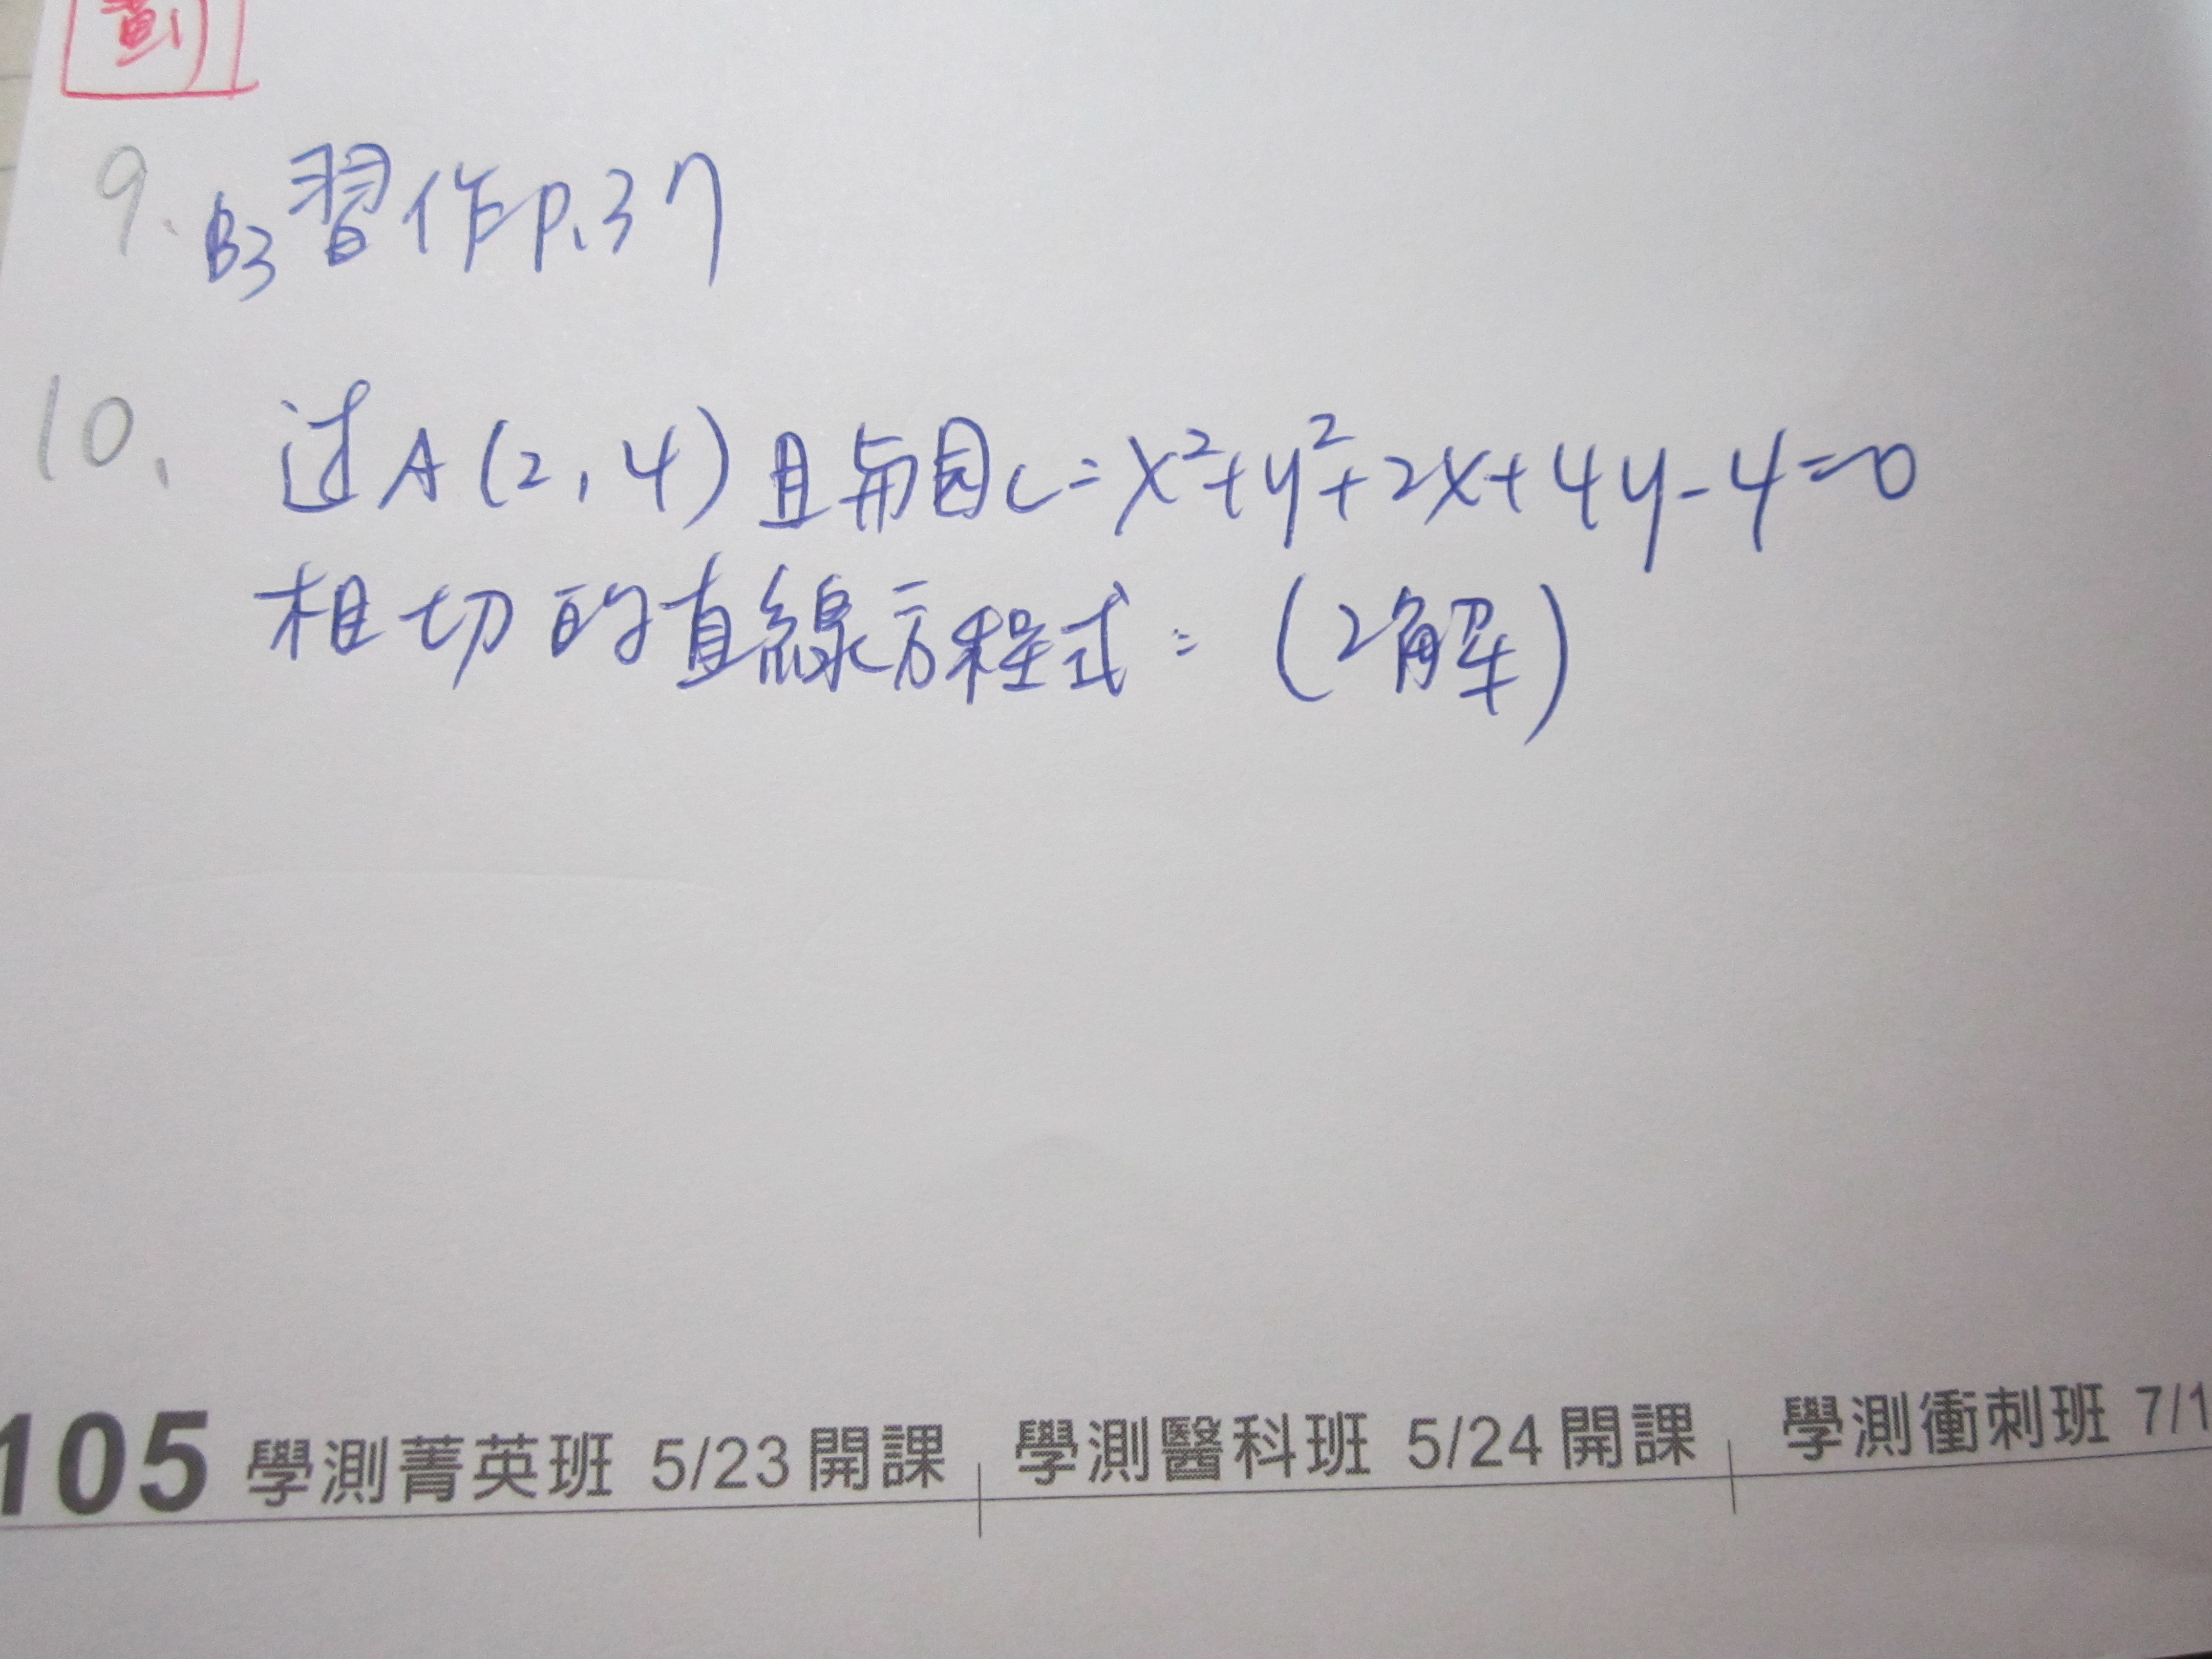 劃
9. B3習作P.37
10. 过A(2,4)且与圆C:x²+y²+2x+4y-4=0
相切的直線方程式:(2解)
105 學測菁英班 5/23開課 學測醫科班 5/24開課 學測衝刺班 7/1